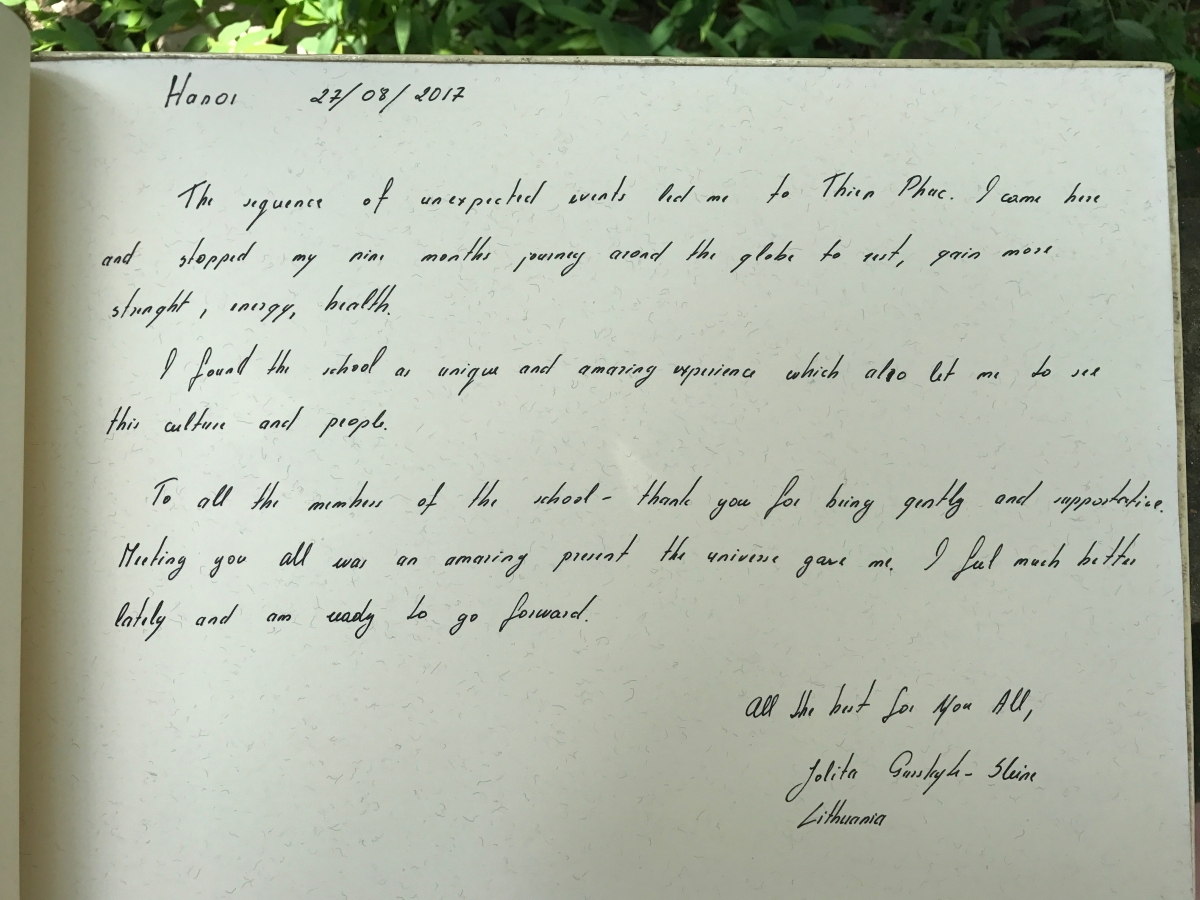 Hanoi 27/08/2017
The sequence of unexpected events led me to Thien Phuc. I came here
and stopped my nine months journey arond the globe to rest, gain more
strenght, energy, health.
I found the school as unique and amazing experience which also let me to see
this culture and people.
To all the members of the school - thank you for being gently and supportative.
Meeting you all was an amazing present the universe gave me. I feel much better
lately and am ready to go forward.
All the best for You All,
Jolita
Lithuania